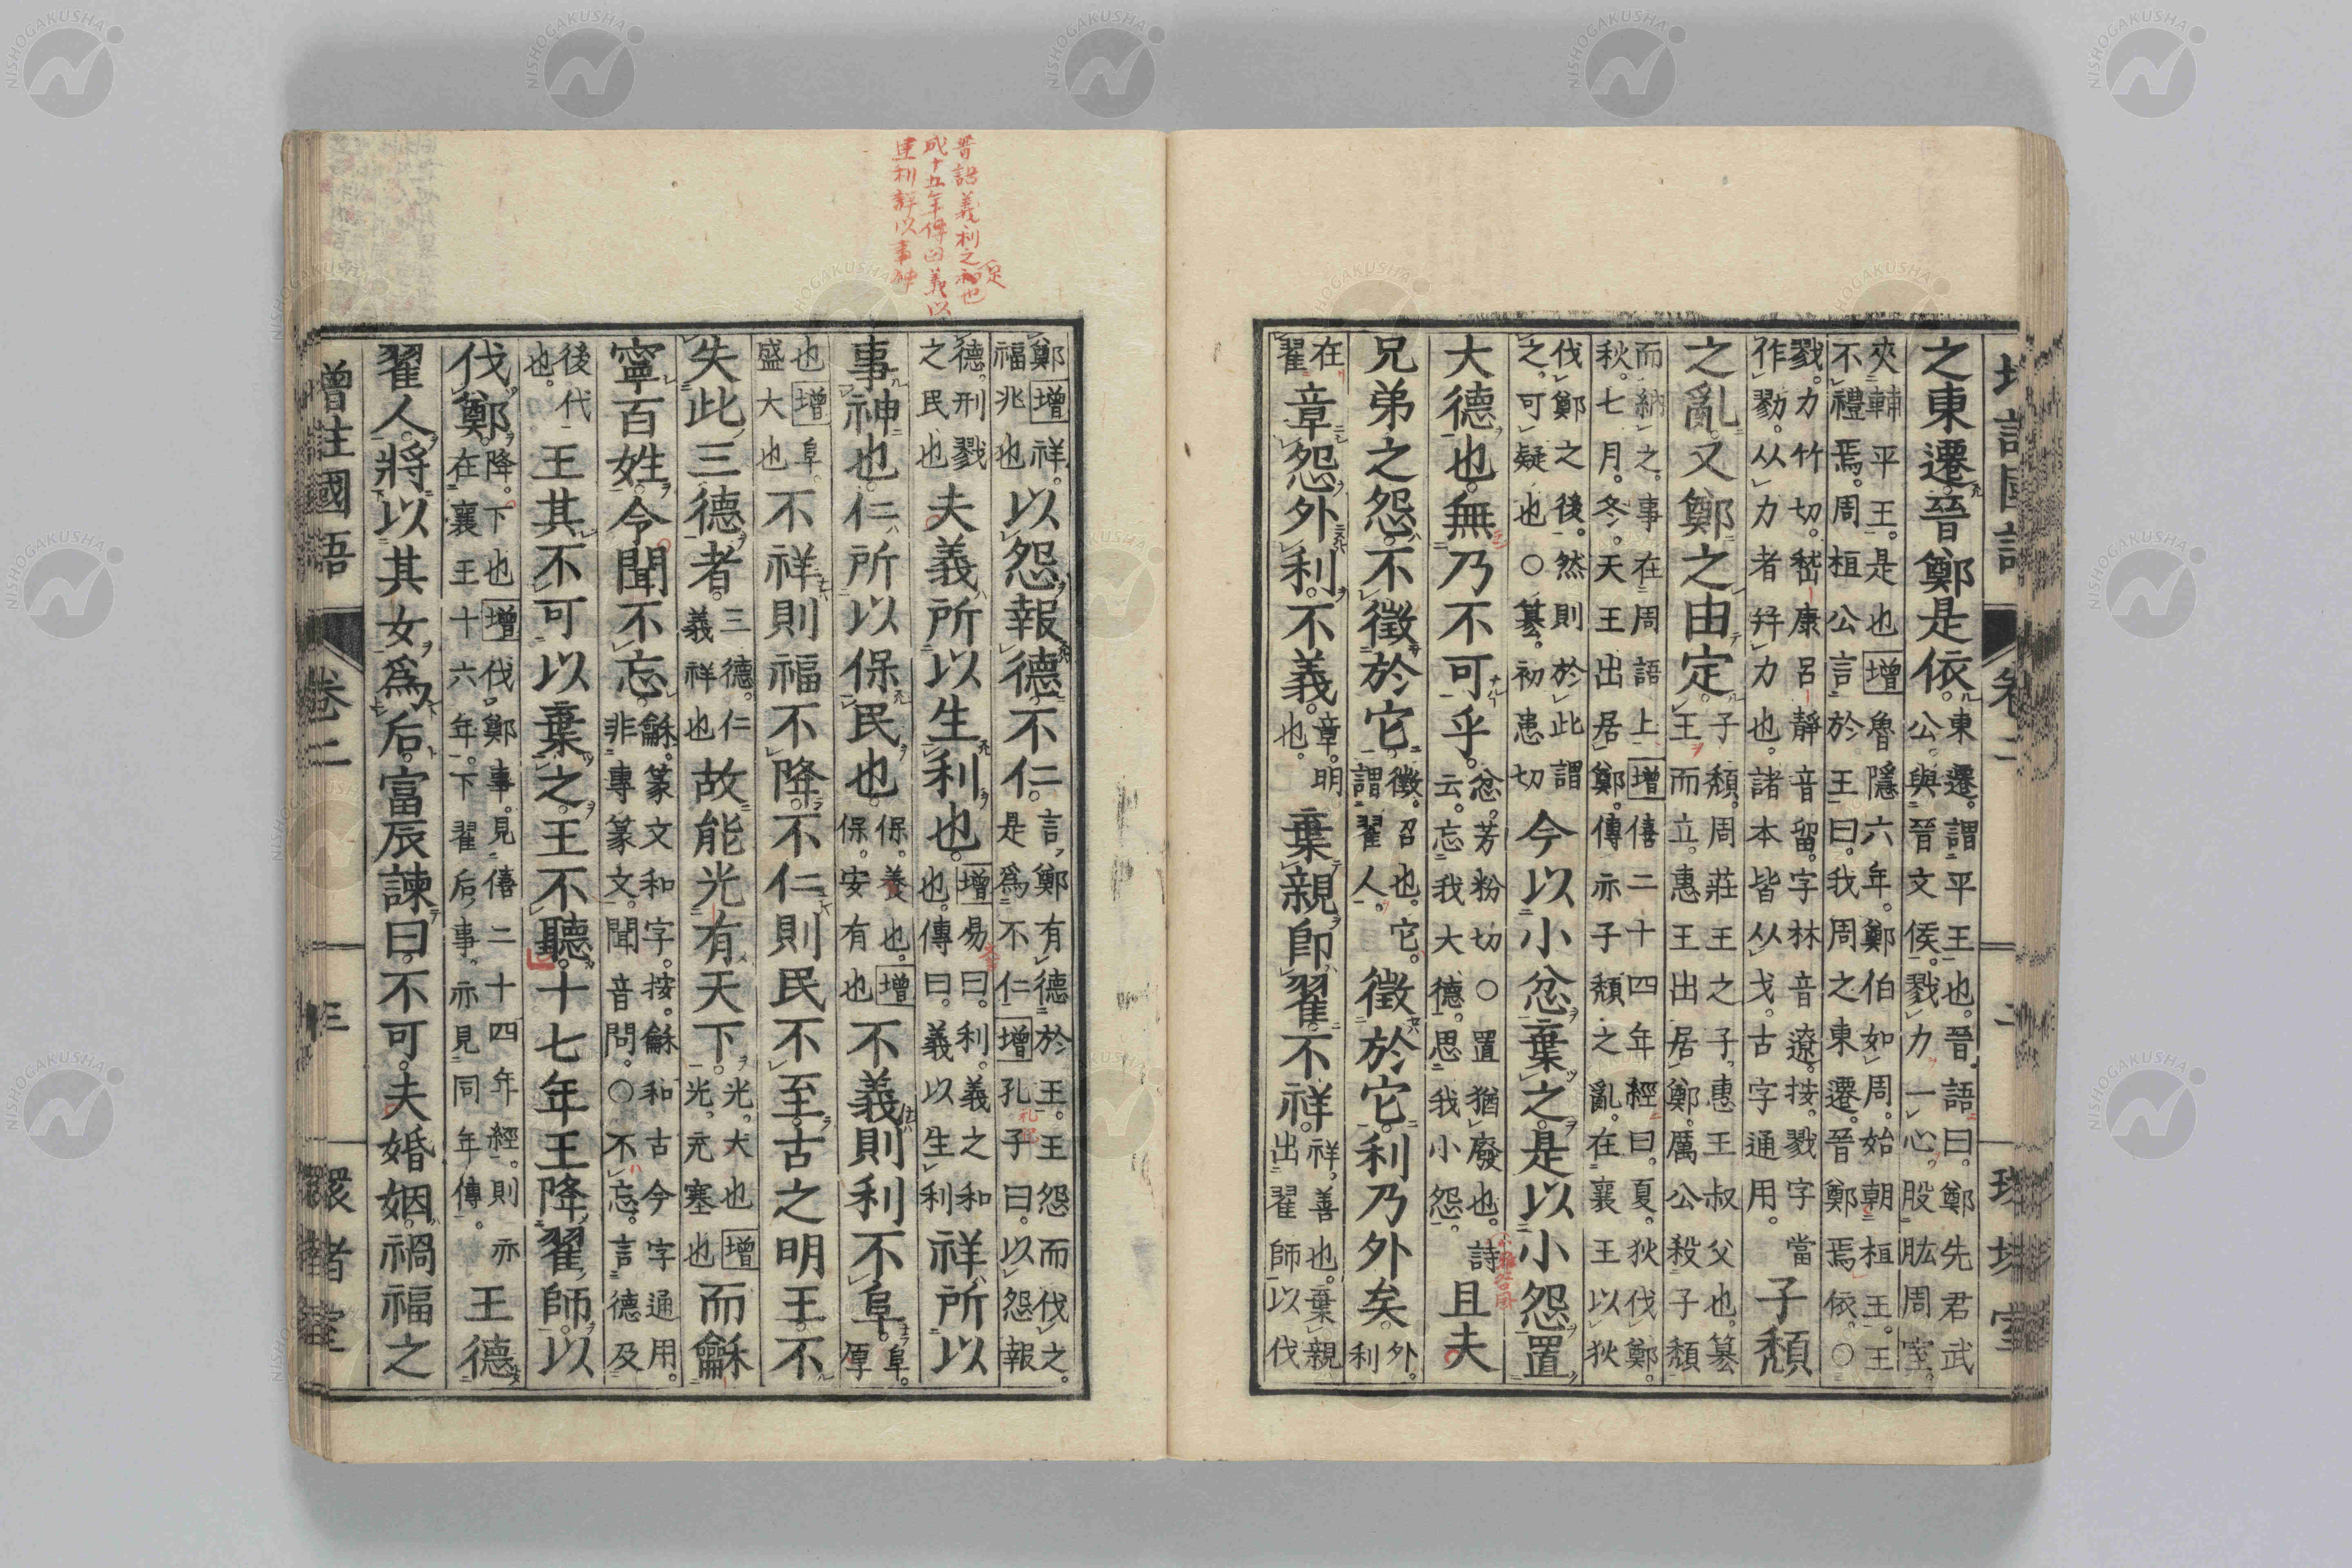 增註國語 卷二 二 環堵室
之東遷晉鄭是依。東遷。謂平王也。晉語曰。鄭先君武公。與晉文侯。戮力一心。股肱周室。
夾輔平王。是也增魯隱六年。鄭伯如周。始朝桓王。王不禮焉。周桓公言於王曰。我周之東遷。晉鄭焉依。○
戮。力竹切。嵇康呂靜音留。字林音遼。按。戮字當作勠。从力者幷力也。諸本皆从戈。古字通用。子頹
之亂。又鄭之由定。子頹。周莊王之子。惠王叔父也。篡王而立。惠王出居鄭。厲公殺子頹
而納之。事在周語上增僖二十四年經曰。夏。狄伐鄭。秋。七月。冬。天王出居鄭。傳亦子頹之亂。在襄王以狄
伐鄭之後。然則於此謂之。可疑也○篡。初患切今以小忿棄之。是以小怨置
大德也。無乃不可乎。忿。芳粉切○置猶廢也。詩云。忘我大德。思我小怨。且夫
小雅谷風
兄弟之怨。不徵於它。徵。召也。它。謂翟人。徵於它。利乃外矣。外。利
在翟章怨外利。不義。章。明也。棄親卽翟。不祥。祥。善也。棄親出翟師以伐
晉語義利之足也
成十五年傳曰義以
建利詳以事神
鄭增祥。福兆也以怨報德。不仁。言鄭有德於王。王怨而伐之。是爲不仁增孔子曰。以怨報
禮記
德。刑戮之民也夫義所以生利也。增易曰。利。義之和也。傳曰。義以生利祥所以
事神也。仁所以保民也。保。養也。保。安有也增不義則利不阜。阜。厚
也增阜。盛大也不祥則福不降。不仁則民不至。古之明王。不
失此三德者。三德。仁義祥也故能光有天下。光。大也增光。充塞也而龢
寧百姓。令聞不忘。龢。篆文和字。按。龢和古今字通用。非專篆文。聞音問。○不忘。言德及
後代也。王其不可以棄之。王不聽。十七年。王降翟師。以
伐鄭。降。下也增伐鄭事。見僖二十四年經。則亦在襄王十六年。下翟后事。亦見同年傳。王德
翟人。將以其女爲后。富辰諫曰。不可。夫婚姻。禍福之
增註國語 卷二 三 環堵室